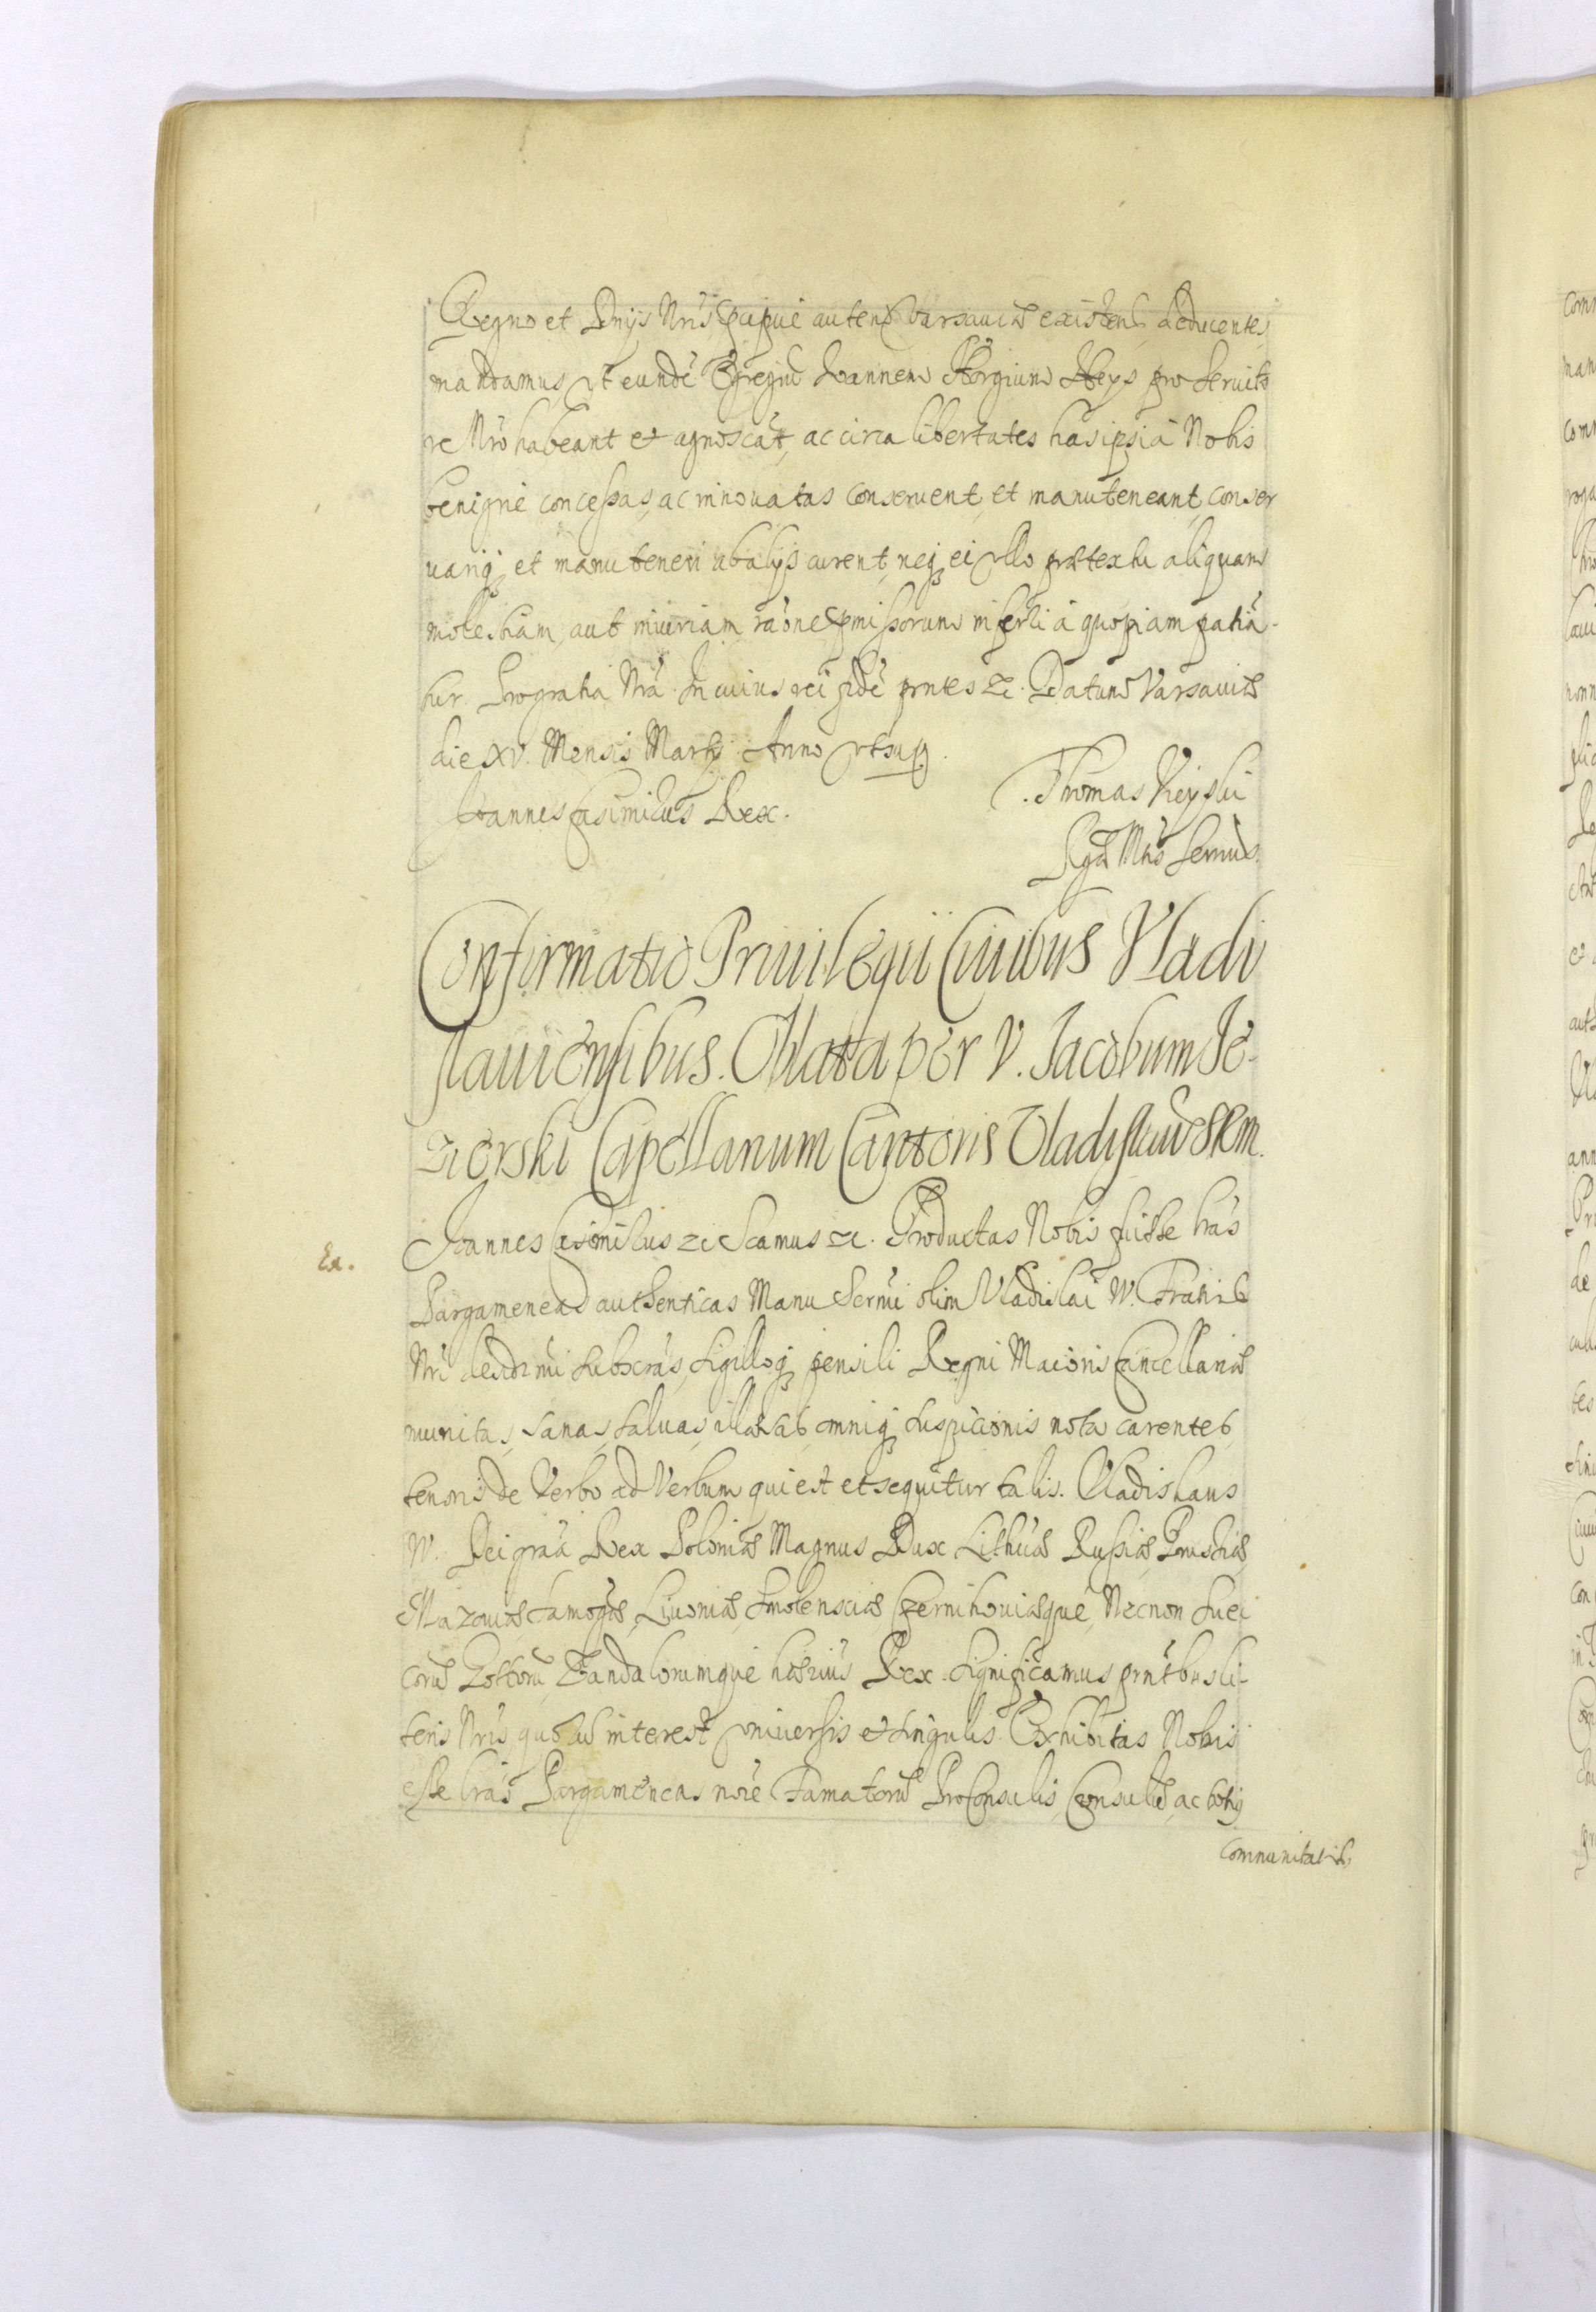 Regno et Dnijs Nris, pcipue autem Varsauiæ existen. deducentes
mandamus, vt eundē Egregiū Ioannem Georgium Heys pro Seruito
re Nrō habeant et agnoscāt, ac circa libertates hās ipsi à Nobis
benignè concessas, ac innouatas conseruent, et manuteneant, conser
uariq; et manuteneri ab alijs curent, neq; ei vllo prætextu aliquam
molestiam, aut iniuriam, raōne pmissorum inferri à quopiam patiā-
tur. Pro gratia Nrā. In cuius rei fidē prntes &c. Datum Varsauiæ
die XV. Mensis Martij Anno vt supra.
Ioannes Casimirus Rex.
Thomas Vieyski
Rgæ Mtis Secrius.
Confirmatio Priuilegii Ciuibus Vladi
slauiensibus. Oblata per V. Iacobum Ie-
zierski Capellanum Cantoris Vladislauiē Skm.
Ex.
Ioannes Casimirus &c Scamus &c. Productas Nobis fuisse lrās
Pargameneas authenticas Manu Sermi olim Vladislai IV. Fratris
Nri desidrmi subscrās, sigilloq; pensili Regni Maioris Cancellariæ
munitas, sanas, saluas, illæsas, omniq; suspicionis nota carentes,
tenoris de Verbo ad Verbum qui est et sequitur talis. Vladislaus
IV. Dei grāā Rex Poloniæ Magnus Dux Lithuæ Russiæ, Prussiæ,
Mazouiæ, Samogæ, Liuoniæ, Smolensciæ, Czernihouiæque, Necnon Sue
corū Gottorū, Vandalorumque hærius Rex. Significamus prntbus li-
teris Nris quorum interest, vniuersis et singulis. Exhibitas Nobis
esse lrās Pargameneas noīe Famatorū Proconsulis, Consulū, ac totius
Communitatis,